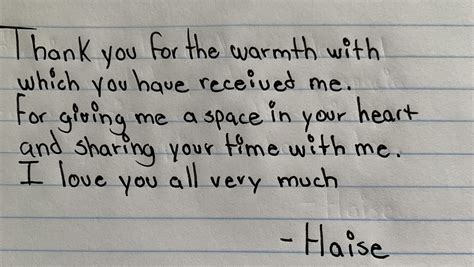 Thank you for the warmth with
which you have received me.
For giving me a space in your heart
and sharing your time with me.
I love you all very much
- Haise